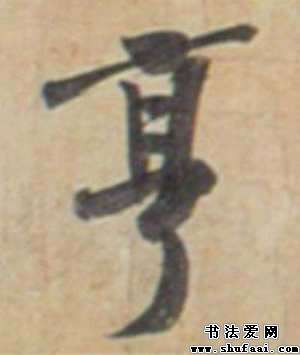 享
书法爱网
www.shufaai.com